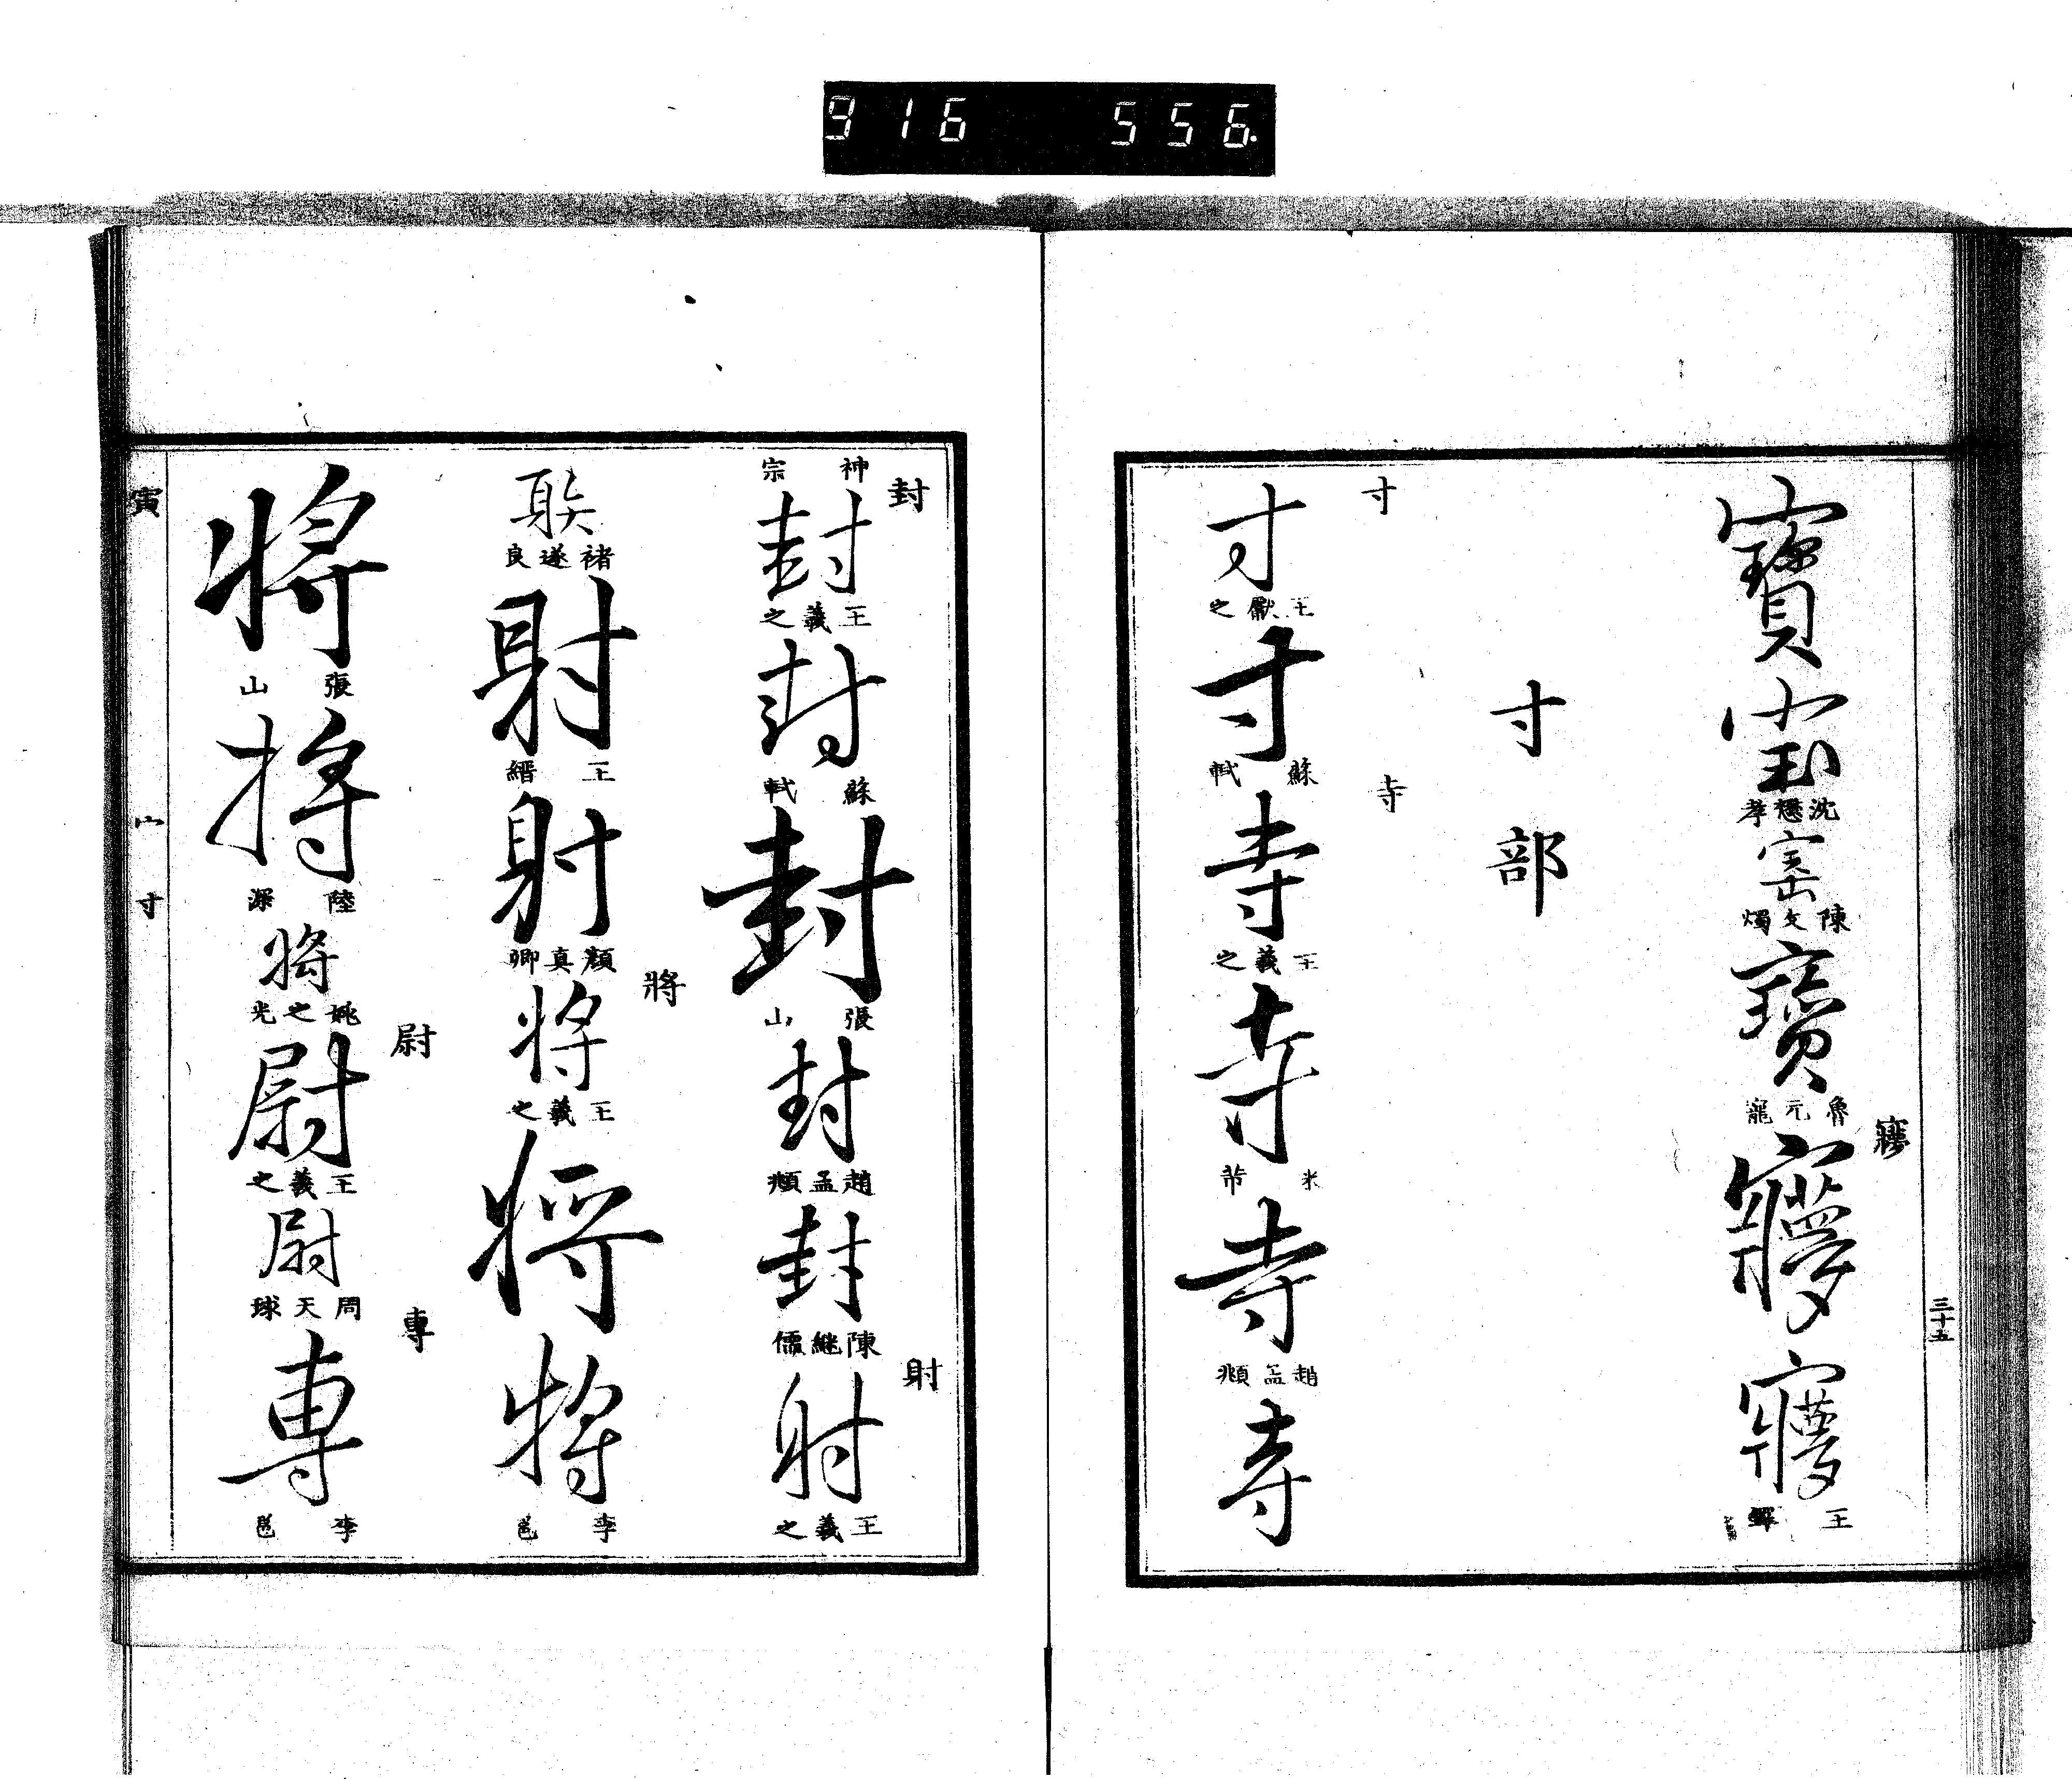 916 556
三十五
寶
宝
沈懋孝
窰
陳文燭
寶
魯元寵
寱
王鐸
寸部
寸
寸
王獻之
寸
蘇軾
寺
寺
王羲之
寺
米芾
寺
趙孟頫
寺
神宗
封
封
王羲之
封
蘇軾
封
張山
封
趙孟頫
封
陳繼儒
射
射
王羲之
褚遂良
射
王縉
射
顏真卿
將
將
王羲之
將
將
李邕
將
張山
將
陸深
將
姚之光
尉
尉
王羲之
尉
周天球
專
專
李邕
寅
宀寸